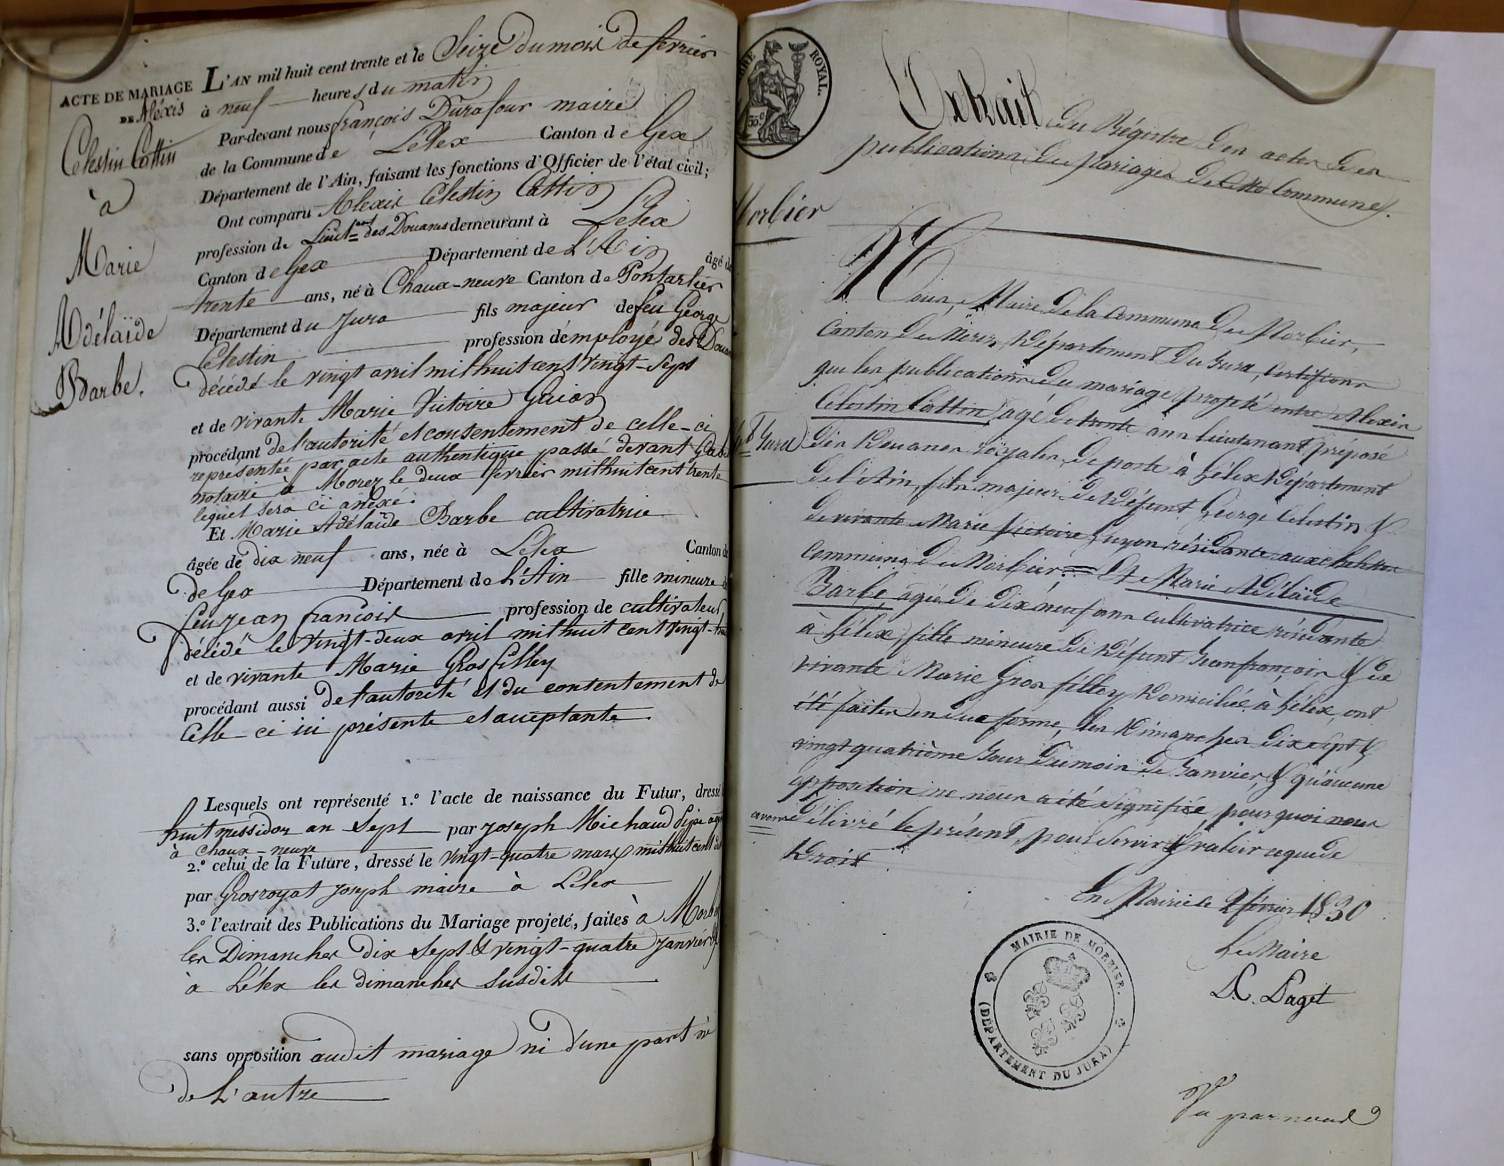 ACTE DE MARIAGE
DE Aléxis
Celestin Cottin
à
Marie
Adélaïde
Barbe.
L'AN mil huit cent trente et le Seize du mois de fevrier
à neuf heures du matin
Par-devant nous françois Durafour maire
de la Commune de Lélex Canton de Gex
Département de l'Ain, faisant les fonctions d'Officier de l'état civil;
Ont comparu Alexis Celestin Cottin
profession de Lieut.nt des Douanes demeurant à Lélex
Canton de Gex Département de L'Ain âgé de
trente ans, né à Chaux-neuve Canton de Pontarlier
Département du Jura fils majeur de feu George
Celestin profession d'employé des Douan
décédé le vingt avril mil huit cent vingt-sept
et de vivante Marie Victoire Guion
procédant de l'autorité et consentement de celle-ci
représentée par acte authentique passé devant
notaire à Morez le deux fevrier mil huit cent trente
lequel sera ci annexé.
Et Marie Adélaïde Barbe cultivatrice
âgée de dix neuf ans, née à Lélex Canton de
de Gex Département de L'Ain fille mineure de
feu jean francois profession de cultivateur
décédé le vingt-deux avril mil huit cent vingt-
et de vivante Marie Grosfilley
procédant aussi de l'autorité et du contentement de
Celle-ci ici présente et acceptante.
Lesquels ont représenté 1.º l'acte de naissance du Futur, dressé
huit messidor an Sept par joseph Michaud
à Chaux-neuve
2.º celui de la Future, dressé le vingt-quatre mars mil huit cent
par Grosroyat joseph maire à Lélex
3.º l'extrait des Publications du Mariage projeté, faites à Morb
les Dimanches dix sept & vingt-quatre janvier &
à Lélex les dimanches susdits
sans opposition audit mariage ni d'une part ni
de L'autre
ROYAL.
35.c
Extrait du Régistre des actes des
publications de Mariages de cette Commune.
Morbier
Nous, Maire de la Commune de Morbier,
Canton de Morez, Département du Jura, Certifions
que les publications du mariage projeté entre Alexis
Celestin Cottin, agé de trente ans Lieutenant préposé
D.t Jura
des Douanes royales, de poste à Lélex Département
de l'Ain, fils majeur de Défunt George Celestin &
de vivante Marie Victoire Guyon résidante aux
commune de Morbier = Et de Marie Adélaïde
Barbe, agée de dix neuf ans cultivatrice résidante
à Lélex, fille mineure de Défunt Jean françois & de
vivante Marie Gros filley, Domiciliés à Lélex, ont
été faites en due forme, les Dimanches dix sept &
vingt quatrième jour du mois de Janvier, & qu'aucune
opposition ne nous a été signifiée, pourquoi nous
avons délivré le présent, pour servir & valoir ce que de
Droit.
En Mairie le 2 février 1830
Le Maire
A. Paget
MAIRIE DE MORBIER.
(DÉPARTEMENT DU JURA)
Vu par nous